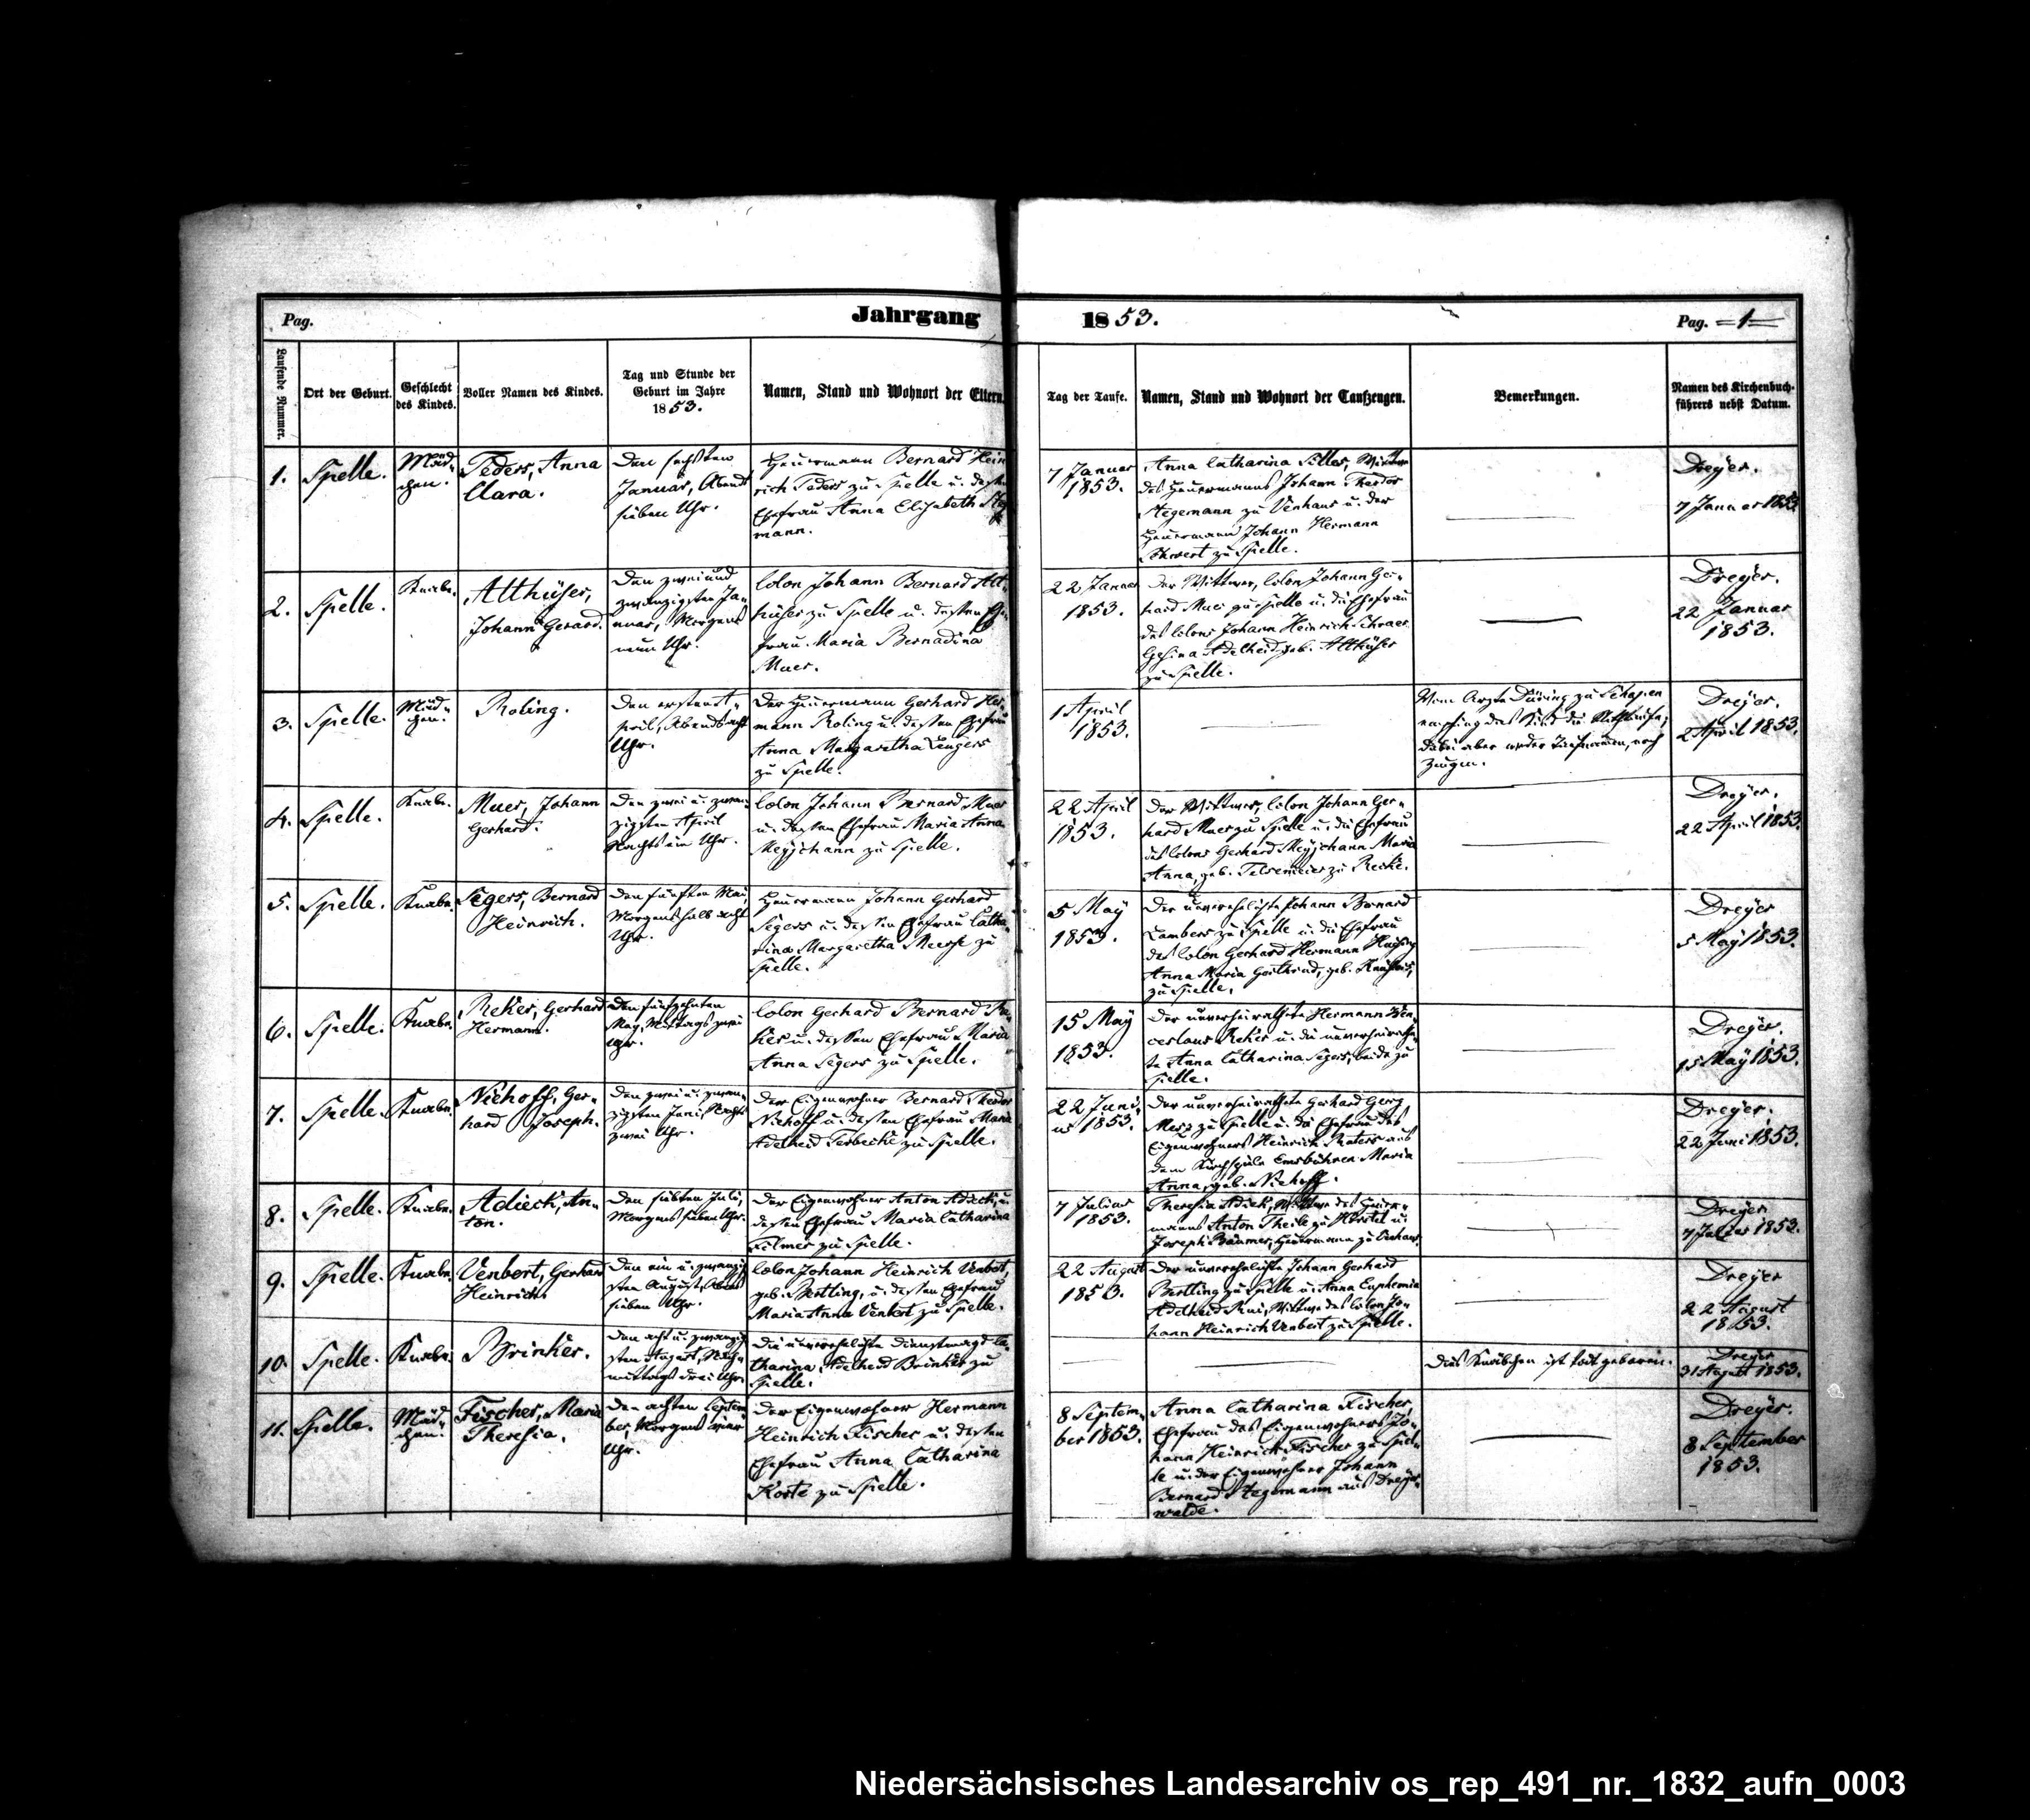 Pag.
Jahrgang 1853.
Pag. =1=
Laufende Nummer.
Ort der Geburt.
Geschlecht
des Kindes.
Voller Namen des Kindes.
Tag und Stunde der
Geburt im Jahre
1853.
Namen, Stand und Wohnort der Eltern.
Tag der Taufe.
Namen, Stand und Wohnort der Taufzeugen.
Bemerkungen.
Namen des Kirchenbuch-
führers nebst Datum.
1.
Spelle.
Mäd-
chen.
Teders, Anna
Clara.
Den sechsten
Januar, Abends
sieben Uhr.
Heuermann Bernard Hein
rich Teders zu Spelle u. dessen
Ehefrau Anna Elisabeth
mann.
7 Januar
1853.
Anna Catharina Silles, Wittwe
des Heuermanns Johann Theodor
Stegemann zu Venhaus u. der
Heuermann Johann Hermann
zu Spelle.
Dreyer.
7 Januar 1853
2.
Spelle.
Knabe.
Althüser,
Johann Gerard.
Den zwei und
zwanzigsten Ja-
nuar, Morgens
neun Uhr.
Colon Johann Bernard Alt-
hüser zu Spelle u. dessen Ehe-
frau Maria Bernadina
Muer.
22 Januar
1853.
Der Wittwer, Colon Johann Ger-
hard Muer zu Spelle u. die Ehefrau
des Colons Johann Heinrich Schraer
Gesina Adelheid, geb. Althüser
zu Spelle.
Dreyer.
22 Januar
1853.
3.
Spelle.
Mäd-
chen.
Roling.
Den ersten A-
pril, Abends acht
Uhr.
Der Heuermann Gerhard Her-
mann Roling u. dessen Ehefrau
Anna Margaretha Lengers
zu Spelle.
1 April
1853.
Vom Arzte Düring zu Schapen
empfing das Kind die Nothtaufe;
dabei aber weder Taufnamen, noch
Zeugen.
Dreyer.
2 April 1853.
4.
Spelle.
Knabe.
Muer, Johann
Gerhard.
Den zwei u. zwan-
zigsten April
Nachts ein Uhr.
Colon Johann Bernard Muer
u. dessen Ehefrau Maria Anna
zu Spelle.
22 April
1853.
Der Wittwer, Colon Johann Ger-
hard Muer zu Spelle u. die Ehefrau
des Colons Gerhard Maria
Anna, geb. Telsemeier zu Recke.
Dreyer.
22 April 1853.
5.
Spelle.
Knabe.
Segers, Bernard
Heinrich.
Den fünften Mai,
Morgens halb acht
Uhr.
Heuermann Johann Gerhard
Segers u. dessen Ehefrau Catha-
rina Margaretha zu
Spelle.
5 May
1853.
Der unverehelichte Johann Bernard
Lambers zu Spelle u. die Ehefrau
des Colon Gerhard Hermann
Anna Maria Gerthrud, geb.
zu Spelle.
Dreyer
5 May 1853.
6.
Spelle.
Knabe.
Reker, Gerhard
Hermann.
Den fünfzehnten
May, Mittags zwei
Uhr.
Colon Gerhard Bernard Re-
ker u. dessen Ehefrau Maria
Anna Segers zu Spelle.
15 May
1853.
Der unverheirathete Hermann Wen-
ceslaus Reker u. die unverheirathe-
te Anna Catharina Segers, beide zu
Spelle.
Dreyer.
15 May 1853.
7.
Spelle.
Knabe.
Niehoff, Ger-
hard Joseph.
Den zwei u. zwan-
zigsten Juni, Nachts
zwei Uhr.
Der Eigenwohner Bernard Theodor
Niehoff u. dessen Ehefrau Maria
Adelheid Terbecke zu Spelle.
22 Juni-
us 1853.
Der unverheirathete Gerhard Georg
zu Spelle u. die Ehefrau des
Eigenwohners Heinrich aus
dem Kirchspiele Emsbühren Maria
Anna, geb. Niehoff.
Dreyer.
22 Juni 1853.
8.
Spelle.
Knabe.
Adieck, An-
ton.
Den siebten Juli,
Morgens sieben Uhr.
Der Eigenwohner Anton Adieck, u.
dessen Ehefrau Maria Catharina
zu Spelle.
7 Julius
1853.
Theresia Adieck, Wittwe des Heuer-
manns Anton Theile zu Hörstel u.
Joseph Bäumer, Heuermann zu Venhaus.
Dreyer
7 Julius 1853.
9.
Spelle.
Knabe.
Venbert, Gerhard
Heinrich.
Den ein u. zwanzig-
sten August, Abends
sieben Uhr.
Colon Johann Heinrich Venbert,
geb. Bertling, u. dessen Ehefrau
Maria Anna Venbert zu Spelle.
22 August
1853.
Der unverehelichte Johann Gerhard
Bertling zu Spelle u. Anna Euphemia
Adelheid Wittwe des Colon Jo-
hann Heinrich Venbert zu Spelle.
Dreyer
22 August
1853.
10.
Spelle.
Knabe.
Brinker.
Den acht u. zwanzig-
sten August, Nach-
mittags drei Uhr.
Die unverehelichte Dienstmagd Ca-
tharina Adelheid Brinker zu
Spelle.
Dies Knäbchen ist todt geboren.
Dreyer
31 August 1853.
11.
Spelle.
Mäd-
chen.
Fischer, Maria
Theresia.
Den achten Septem-
ber, Morgens vier
Uhr.
Der Eigenwohner Hermann
Heinrich Fischer u. dessen
Ehefrau Anna Catharina
Korte zu Spelle.
8 Septem-
ber 1853.
Anna Catharina Fischer,
Ehefrau des Eigenwohners Jo-
hann Heinrich Fischer zu Spel-
le u. der Eigenwohner Johann
Bernard Stegemann aus Dreyer-
walde.
Dreyer.
8 September
1853.
Niedersächsisches Landesarchiv os_rep_491_nr._1832_aufn_0003